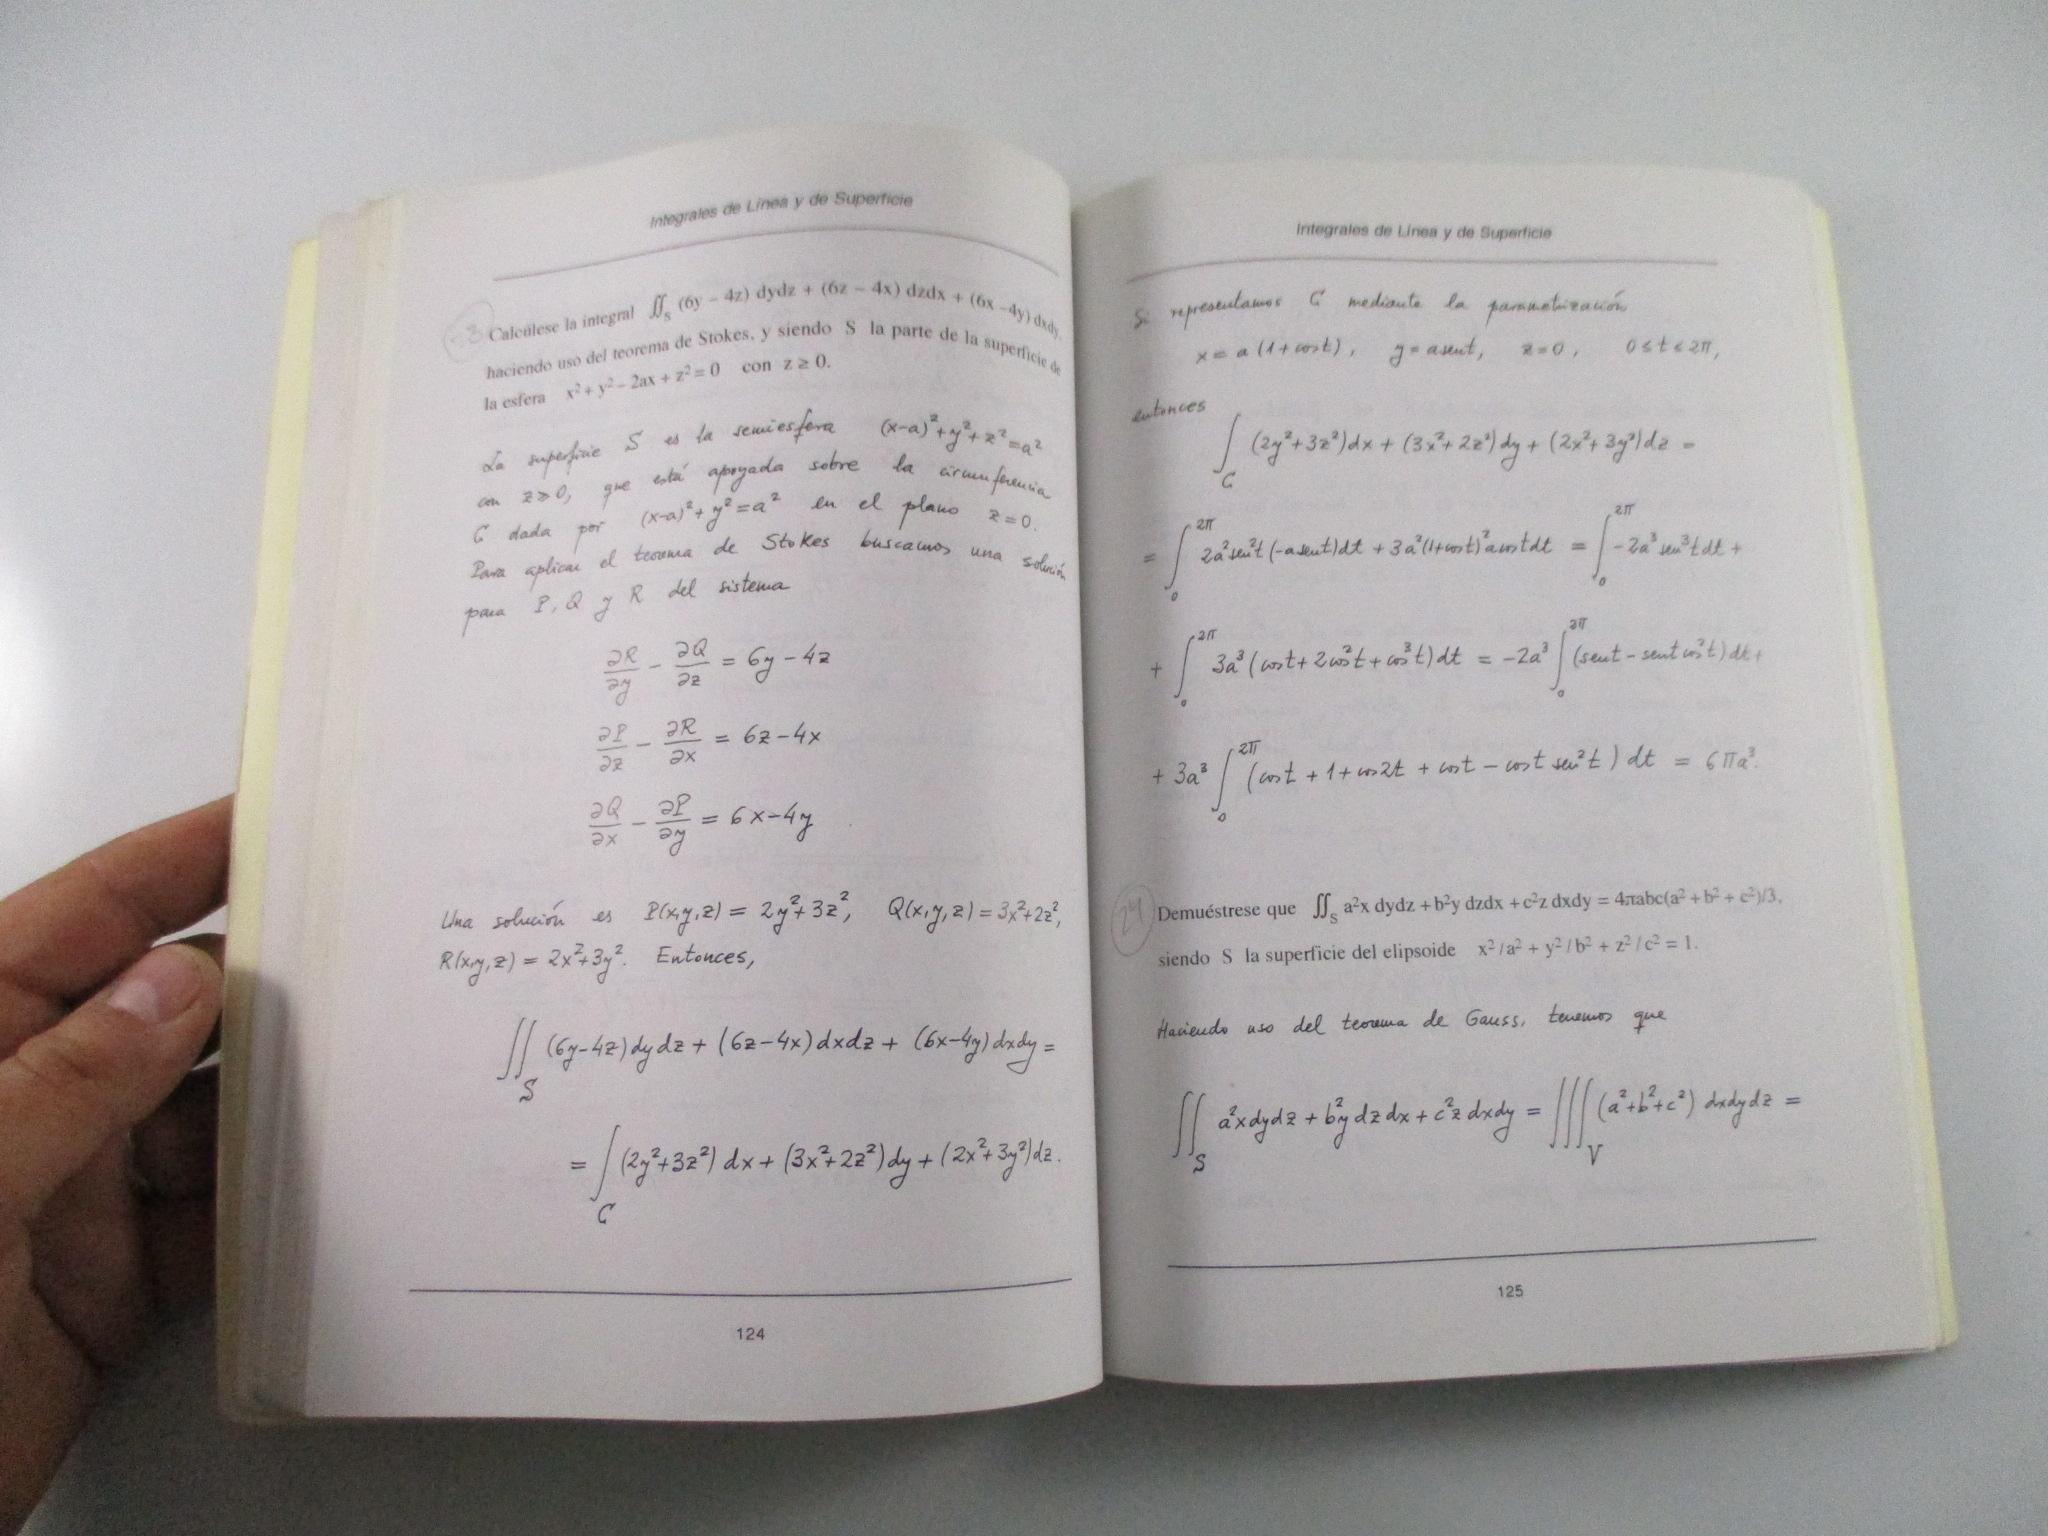 Integrales de Línea y de Superficie
Calcúlese la integral ∬_S (6y – 4z) dydz + (6z – 4x) dzdx + (6x –4y) dxdy,
haciendo uso del teorema de Stokes, y siendo S la parte de la superficie de
la esfera x² + y² – 2ax + z² = 0 con z ≥ 0.
La superficie S es la semiesfera (x-a)²+y²+z²=a²
con z≥0, que está apoyada sobre la circunferencia
C dada por (x-a)²+y²=a² en el plano z=0.
Para aplicar el teorema de Stokes buscamos una solución
para P, Q y R del sistema
∂R/∂y - ∂Q/∂z = 6y-4z
∂P/∂z - ∂R/∂x = 6z-4x
∂Q/∂x - ∂P/∂y = 6x-4y
Una solución es P(x,y,z) = 2y²+3z², Q(x,y,z) = 3x²+2z²,
R(x,y,z) = 2x²+3y². Entonces,
∬_S (6y-4z)dydz + (6z-4x)dxdz + (6x-4y)dxdy =
= ∫_C (2y²+3z²) dx + (3x²+2z²)dy + (2x²+3y²)dz.
124
Integrales de Línea y de Superficie
Si representamos C mediante la parametrización
x = a(1+cost), y = a sent, z=0, 0≤t≤2π,
entonces
∫_C (2y²+3z²)dx + (3x²+2z²)dy + (2x²+3y²)dz =
= ∫_0^2π 2a²sen²t(-a sent)dt + 3a²(1+cost)²a cost dt = ∫_0^2π -2a³sen³t dt +
+ ∫_0^2π 3a³(cost + 2cos²t + cos³t)dt = -2a³ ∫_0^2π (sent - sent cos²t)dt +
+ 3a³ ∫_0^2π (cost + 1 + cos2t + cost - cost sen²t) dt = 6πa³.
24
Demuéstrese que ∬_S a²x dydz + b²y dzdx + c²z dxdy = 4πabc(a² + b² + c²)/3,
siendo S la superficie del elipsoide x² / a² + y² / b² + z² / c² = 1.
Haciendo uso del teorema de Gauss, tenemos que
∬_S a²x dydz + b²y dz dx + c²z dxdy = ∭_V (a²+b²+c²) dxdydz =
125